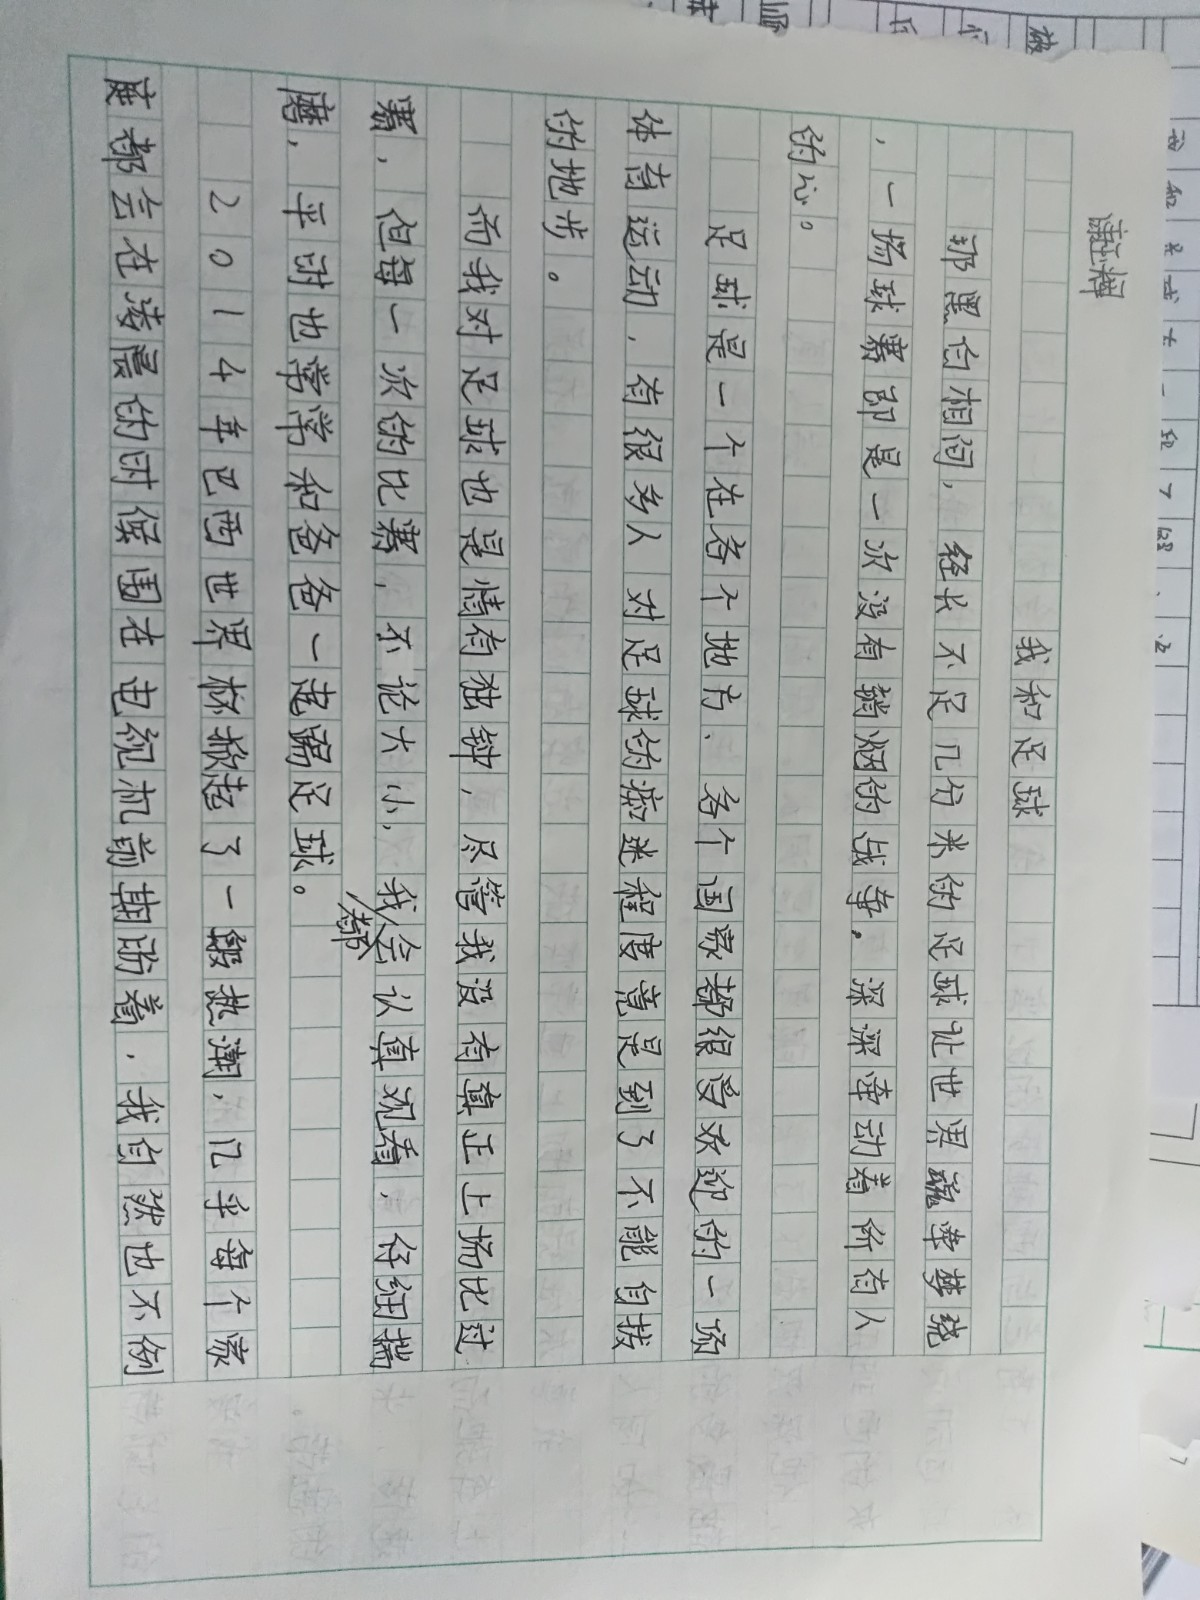 谢辉
我和足球
那黑白相间，经长不足几分米的足球让世界魂牵梦绕
，一场球赛即是一次没有硝烟的战争。深深牵动着所有人
的心。
足球是一个在各个地方、各个国家都很受欢迎的一项
体育运动，有很多人对足球的痴迷程度竟是到了不能自拔
的地步。
而我对足球也是情有独钟，尽管我没有真正上场比过
赛，但每一次的比赛，不论大小，我都会认真观看，仔细揣
磨，平时也常常和爸爸一起踢足球。
2014年巴西世界杯掀起了一般热潮，几乎每个家
庭都会在凌晨的时候围在电视机前期盼着，我自然也不例